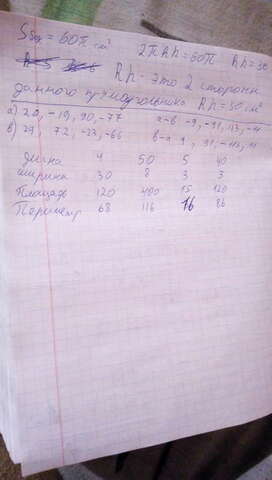 Sбок = 60π см² 2πRh = 60π Rh = 30
Rh - это 2 стороны
данного прямоугольника Rh = 30 см²
а) 20, -19, 90, -77 a-b -9, -91, 113, -11
в) 29, 72, -23, -66 b-a 9, 91, -113, 11
длина 4 50 5 40
ширина 30 8 3 3
Площадь 120 400 15 120
Периметр 68 116 16 86